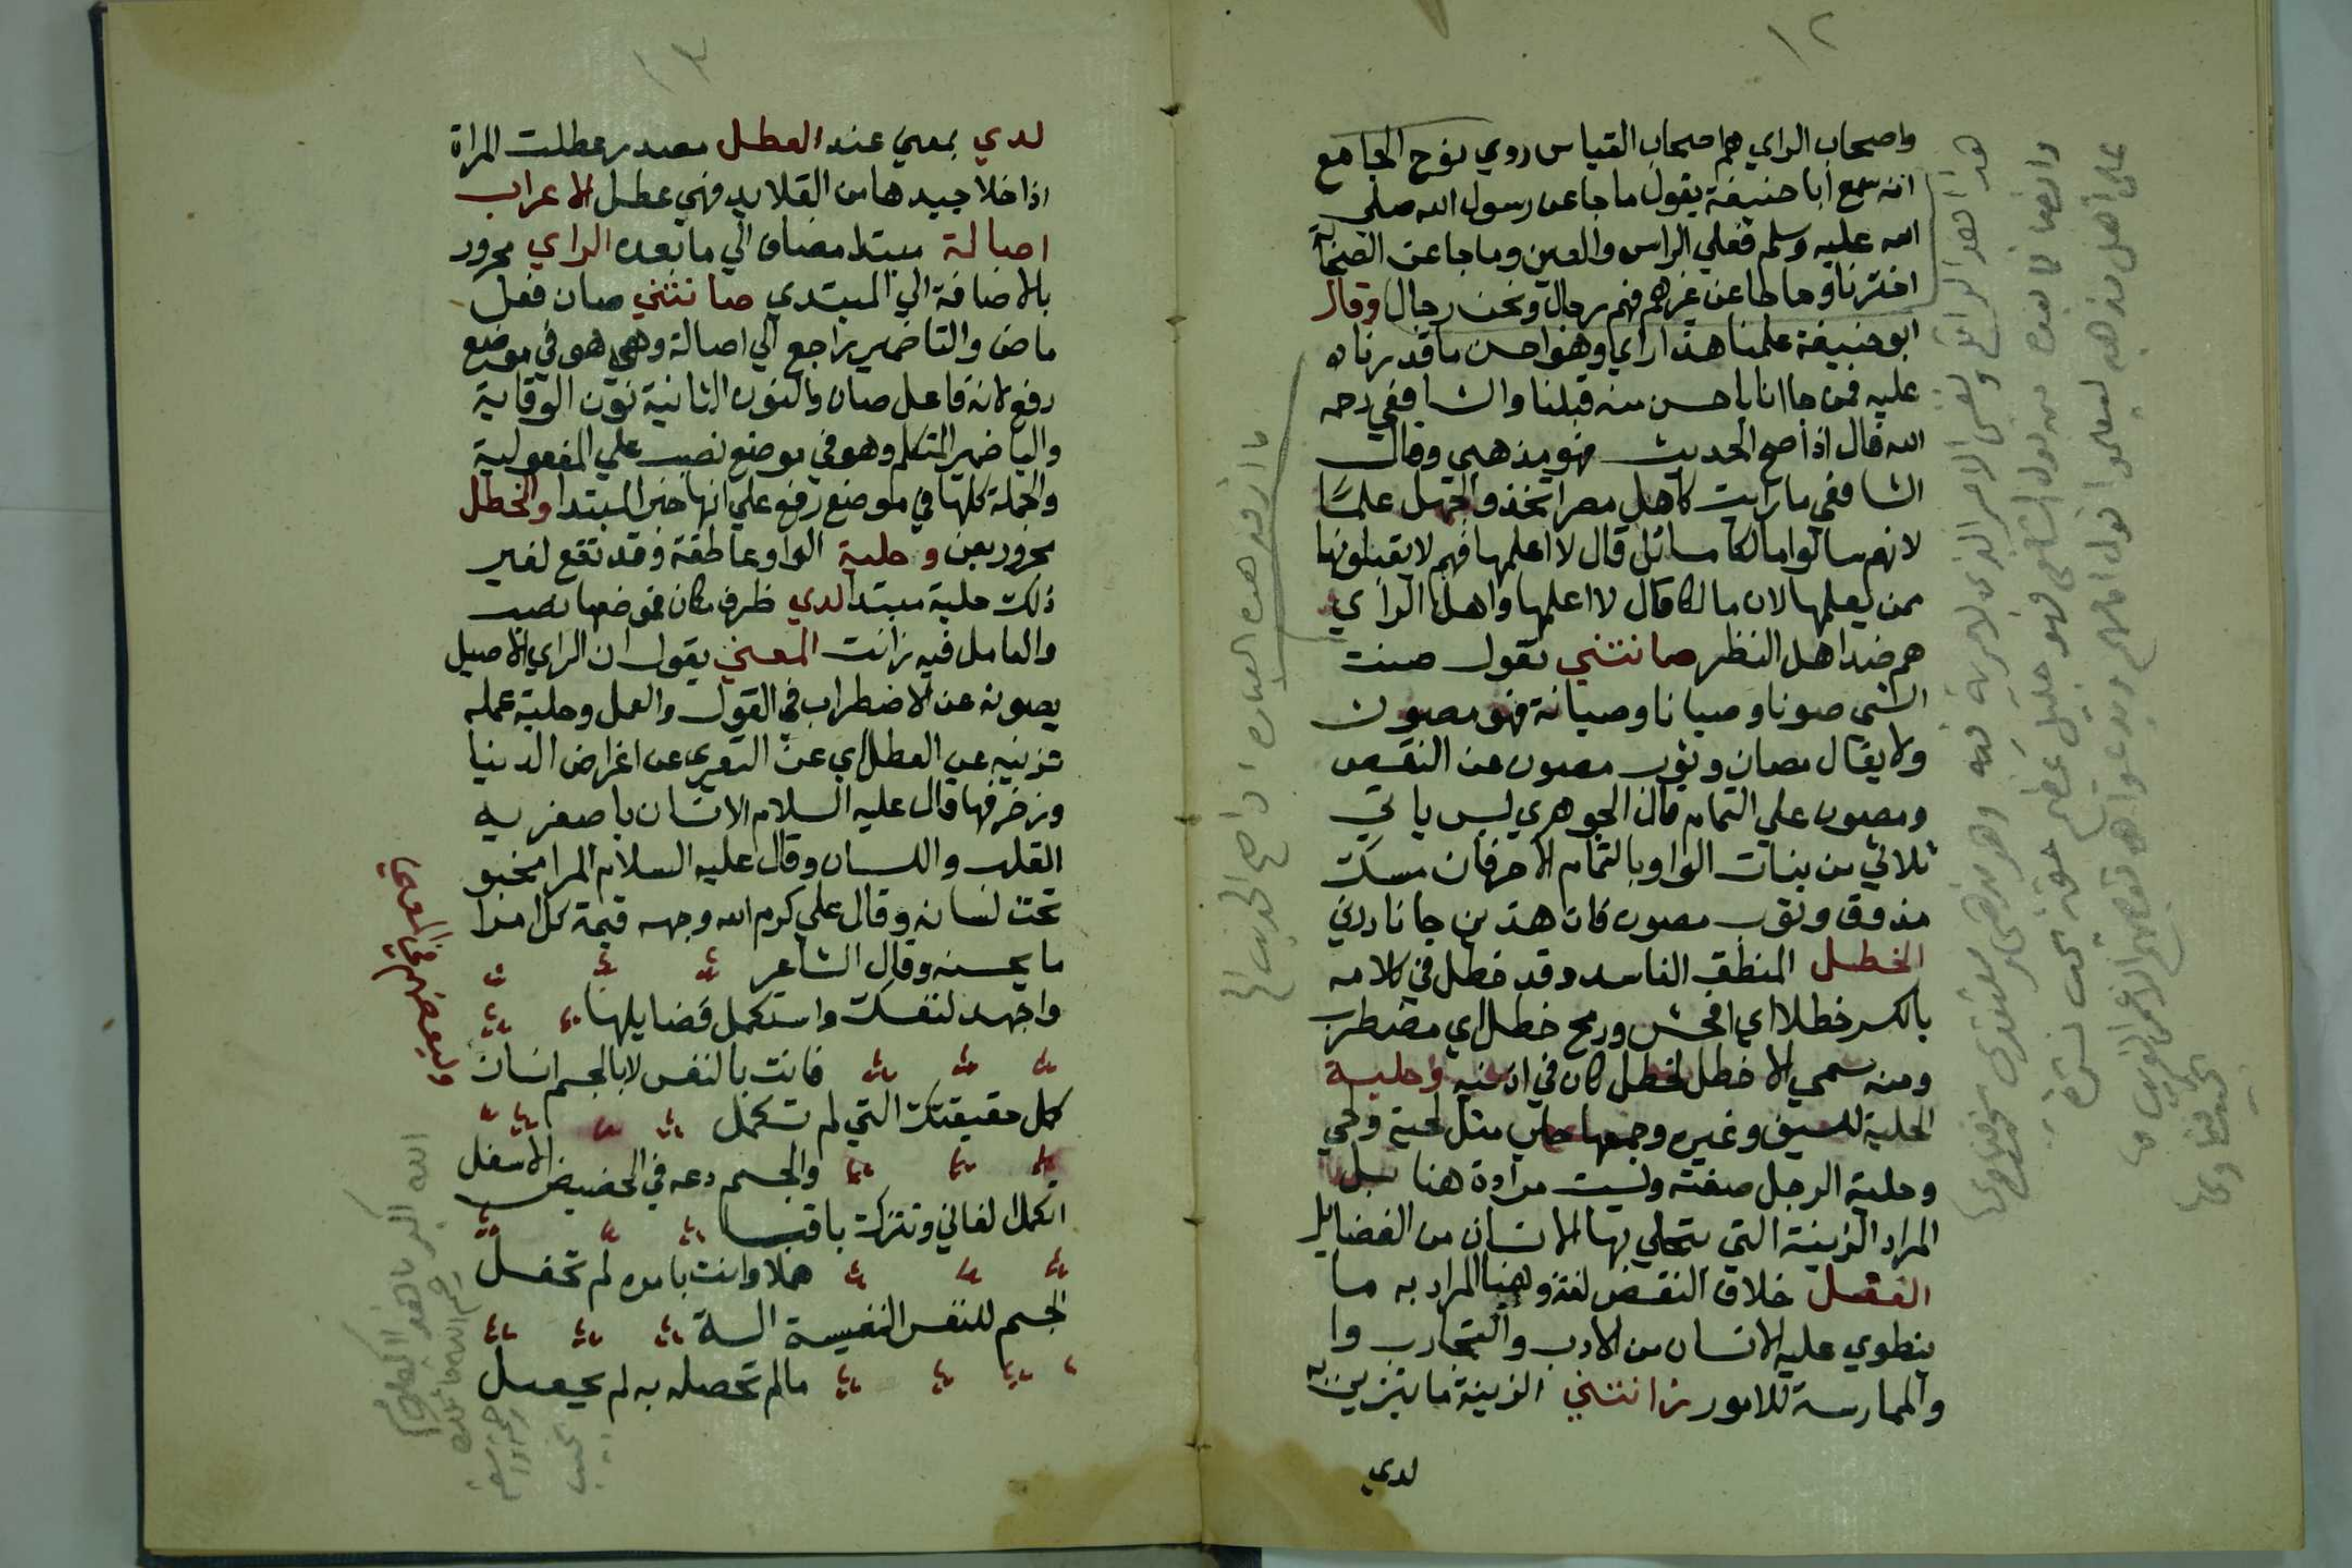 ١٢
واصحاب الراي هم اصحاب القياس روي نوح الجامع
انه سمع ابا حنيفة يقول ما جا عن رسول الله صلي
الله عليه وسلم فعلي الراس والعين وما جا عن الصحابة
اخترنا وما جا عن غيرهم فهم رجال ونحن رجال وقال
ابو حنيفة علمنا هذا راي وهو احسن ما قدرنا
عليه فمن جاانا باحسن منه قبلنا والشافعي رحمه
الله قال اذا صح الحديث فهو مذهبي وقال
الشافعي ما رايت كاهل مصر اتخذوا الجهل علما
لانهم سالوا مالكا مسائل قال لا اعلمها فهم لا يقبلونها
ممن يعلمها لان مالكا قال لا اعلمها واهل الراي
هم ضد اهل النظر صانتني تقول صنت
الشي صونا وصيانا وصيانة فهو مصون
ولا يقال مصان وثوب مصون عن النقص
ومصوون علي التمام قال الجوهري ليس ياتي
ثلاثي من بنات الواو بالتمام الا حرفان مسك
مدووف وثوب مصوون فان هذين جا نادرين
الخطل المنطق الفاسد وقد خطل في كلامه
بالكسر خطلا اي افحش ورمح خطل اي مضطرب
ومنه سمي الاخطل لخطل كان في اذنيه وحلية
الحلية للسيف وغيره وجمعها حلي مثل لحية ولحي
وحلية الرجل صفته وليست مرادة هنا بل
المراد الزينة التي يتحلي بها الانسان من الفضايل
الفضل خلاف النقص لغة وهنا المراد به ما
ينطوي عليه الانسان من الادب والتجارب وا
والممارسة للامور زانتني الزينة ما يتزين به
لدي
١٣
لدي بمعني عند العطل مصدر عطلت المراة
اذا خلا جيدها من القلايد فهي عطل الاعراب
اصالة مبتدا مضاف الي ما بعده الراي مجرور
بالاضافة الي المبتدي صانتني صان فعل
ماض والتا ضمير راجع الي اصالة وهي هو في موضع
رفع لانه فاعل صان والنون الثانية نون الوقاية
واليا ضمير المتكلم وهو في موضع نصب علي المفعولية
والجملة كلها في موضع رفع علي انها خبر المبتدا والخطل
مجرور بعن وحلية الواو عاطفة وقد تقع لغير
ذلك حلية مبتدا لدي ظرف مكان فموضعها نصب
والعامل فيه زانت المعني يقول ان الراي الاصيل
يصونه عن الاضطراب في القول والعمل وحلية عمله
تزينه عن العطل اي عن التعري عن اغراض الدنيا
وزخرفها قال عليه السلام الانسان باصغريه
القلب واللسان وقال عليه السلام المرا مخبو
تحت لسانه وقال علي كرم الله وجهه قيمة كل امرا
ما يحسنه وقال الشاعر
واجهد لنفسك واستكمل فضايلها
فانت بالنفس لا بالجسم انسان
وليعضهم في المعني
كمل حقيقتك التي لم تكمل
والجسم دعه في الحضيض الاسفل
اتكمل الفاني وتترك باقيا
هملا وانت بامره لم تحفل
الجسم للنفس النفيسة الة
مالم تحصله به لم يحصل